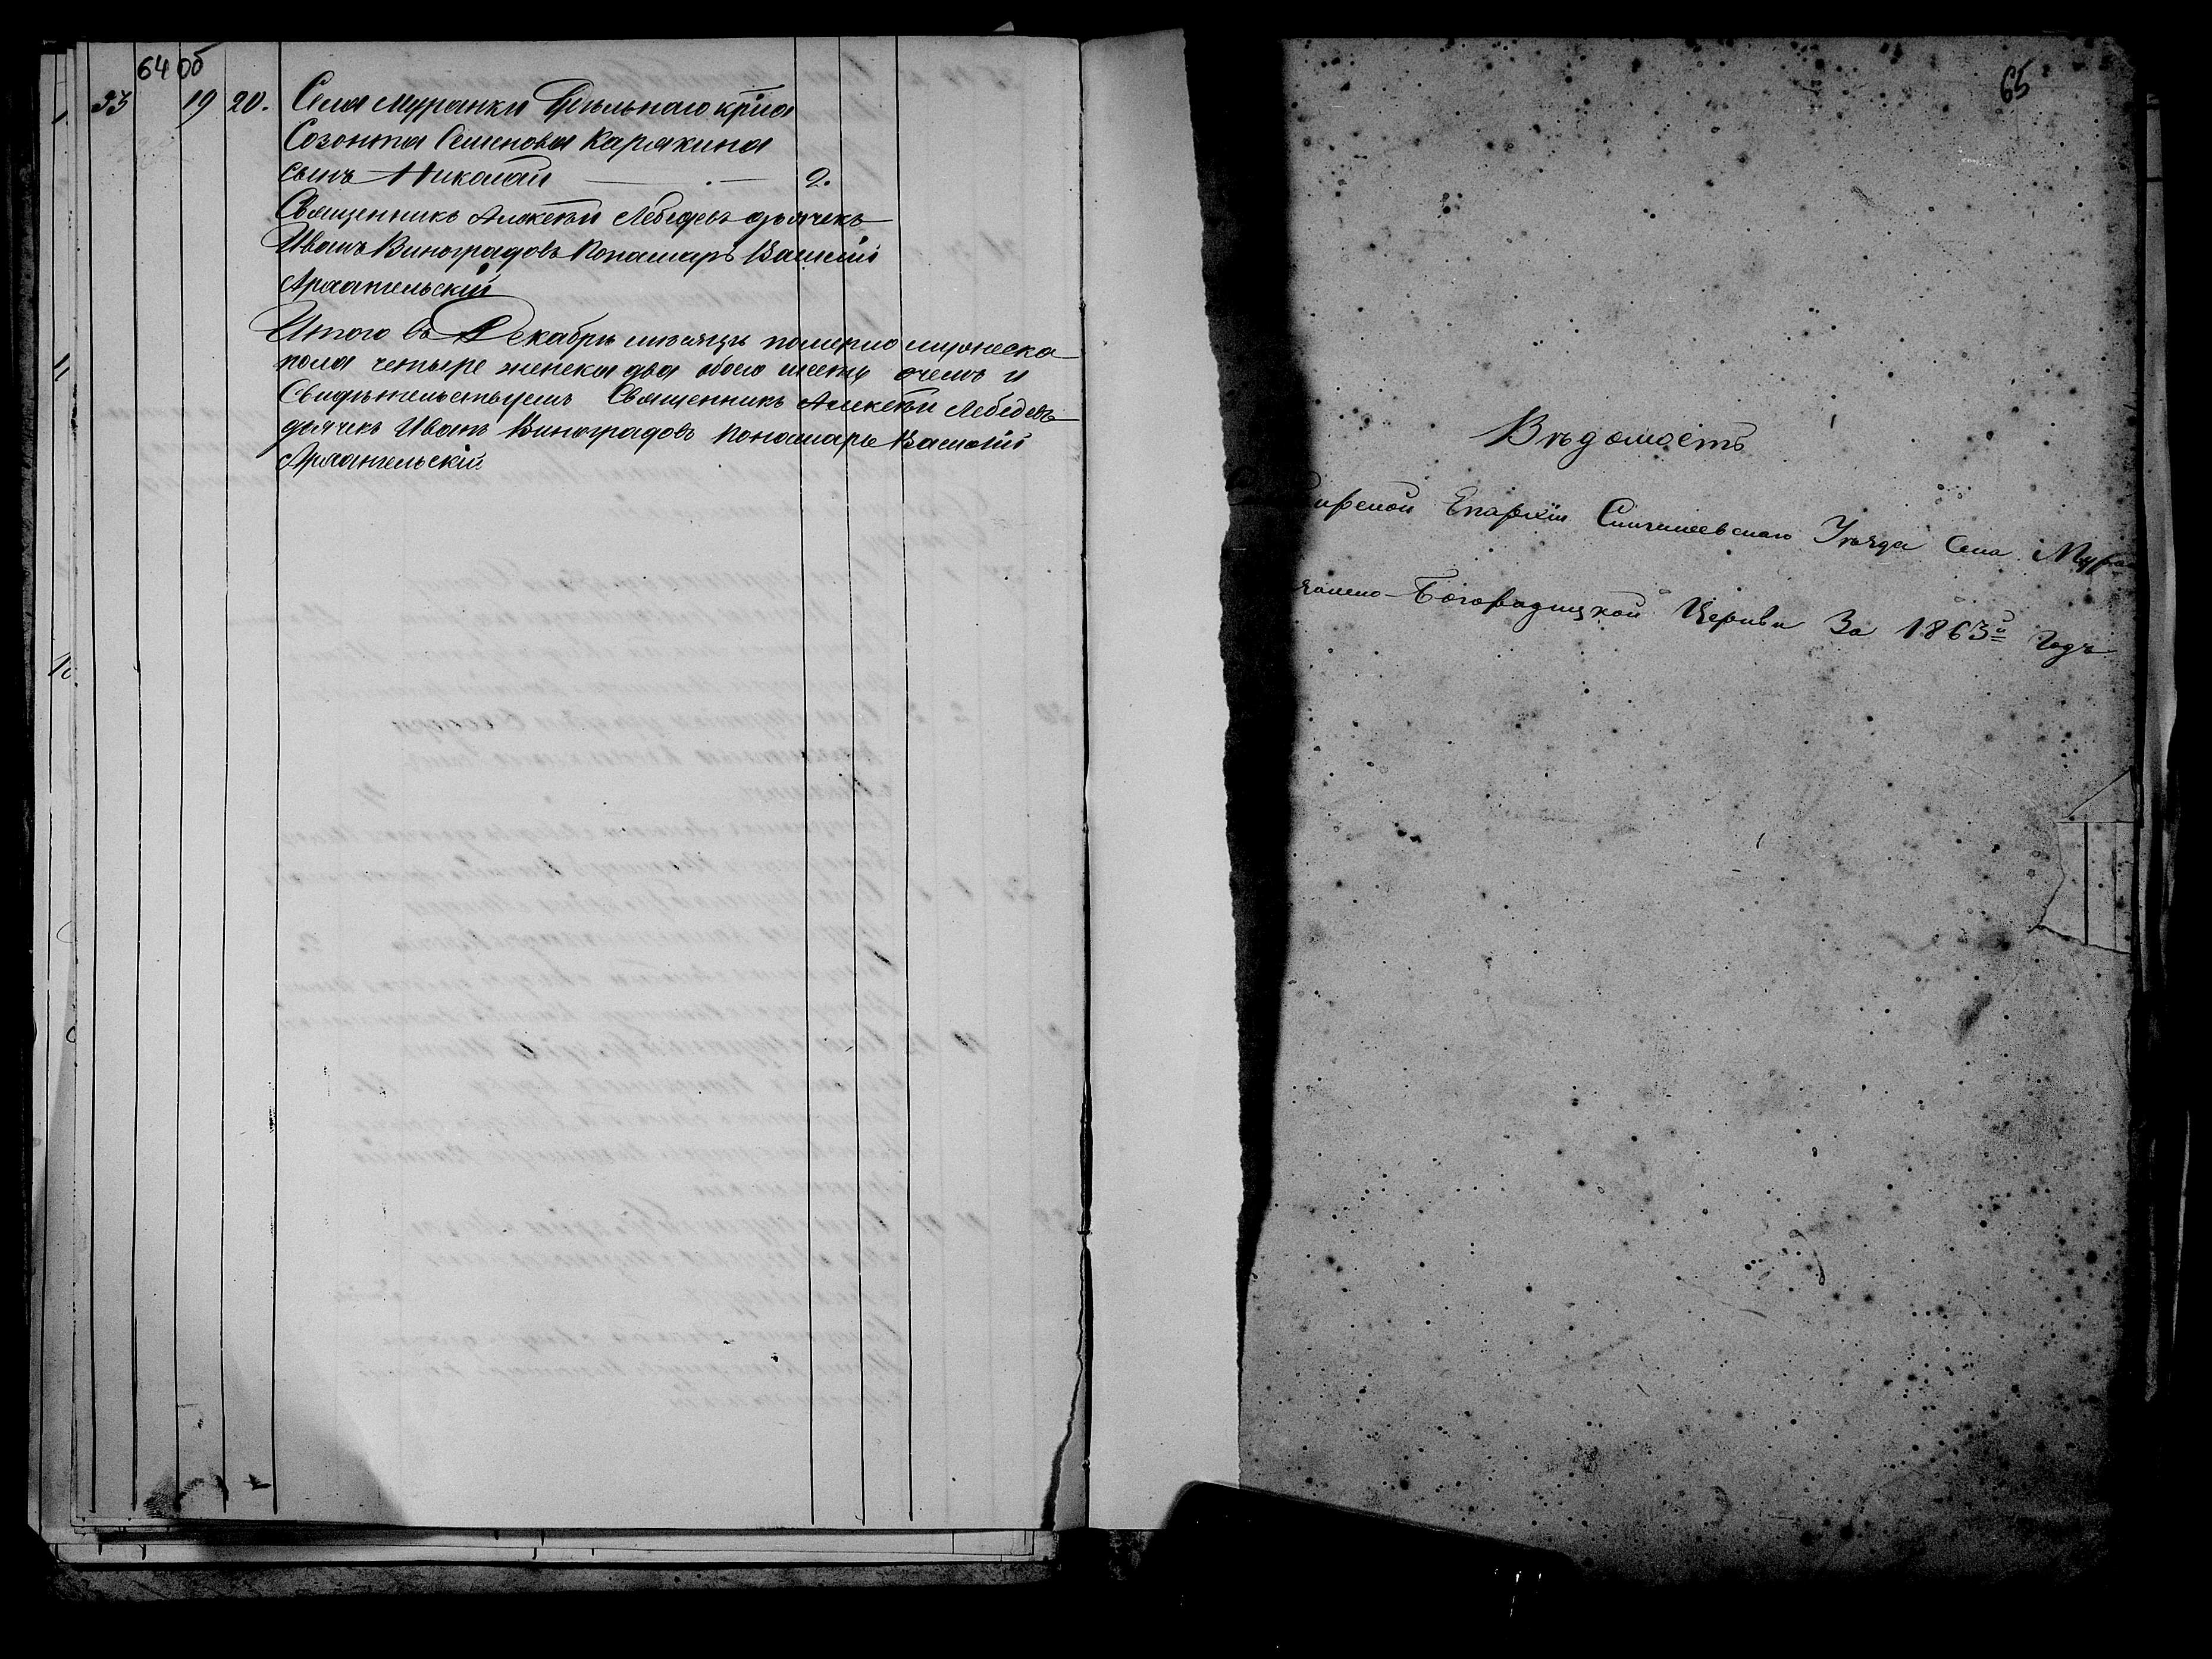 64 об
33 19 20. Села Муранки Удѣльнаго крна
Созонта Семенова Карякина
сынъ Николай — . — 2.
Священникъ Алексѣй Лебедевъ дьячекъ
Иванъ Виноградовъ Пономарь Василій
Архангельскій
Итого въ Декабрѣ мѣсяцѣ померло мужеска
пола четыре женска два обоего шесть очемъ и
Свидѣтельствуемъ Священникъ Алексѣй Лебедевъ
дьячекъ Иванъ Виноградовъ Пономарь Василій
Архангельскій
65
Вѣдомость
бирской Епархіи Сингилеевскаго Уѣзда Села Муран
Богородицкой Церкви За 1863й Годъ